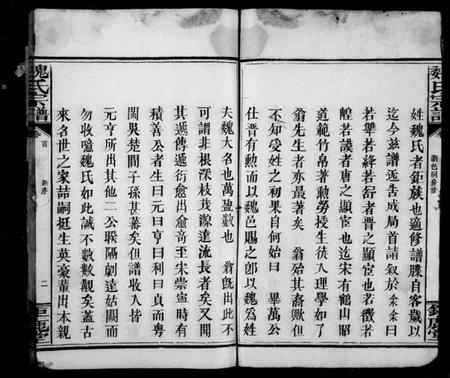 魏氏宗譜
姓魏氏者鉅族也適修譜牒自客歲以
迄今茲譜近告成局首請叙於余余曰
若犖若絳若舒者晉之顯宦也若徵若
若謨者唐之顯宦也迄宋有鶴山昭
道範竹帛著勳勞授生徒入理學如了
翁先生者亦最著矣 翁殆其裔歟但
不知受姓之初果自何始曰 畢萬公
仕晉有勲而以魏邑賜之即以魏爲姓
夫魏大名也萬盈數也 翁旣出此不
可謂非根深枝茂源遠流長者矣又聞
其遞傳遞衍愈出愈奇至宋紫寧時有
積善公者生曰元曰亨曰利曰貞而粤
閩與楚間子孫甚蕃矣但譜收入皆
元亨所出其他二公聯隔劇遠姑闕而
勿收噫魏氏如此誠不數數覯矣蓋古
來名世之家喆嗣挺生英豪華出本親
魏氏宗譜
首
新序
二
鉅鹿堂
鉅鹿堂